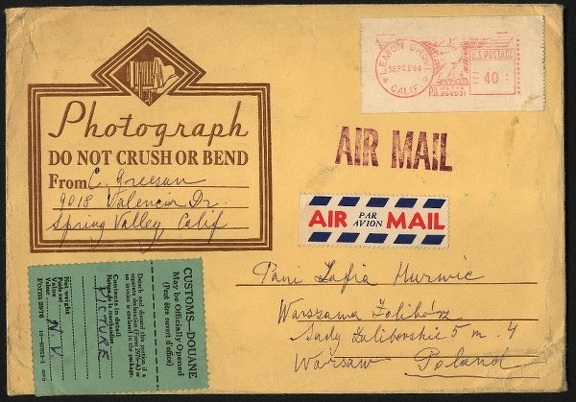 Photograph
DO NOT CRUSH OR BEND
From C. Greesan
9018 Valencia Dr.
Spring Valley, Calif
LEMON GROVE
SEP 21 '64
CALIF.
U.S. POSTAGE
40
P.B. METER
AIR MAIL
AIR PAR AVION MAIL
Pani Zofia Hurwic
Warszawa Żolibórz
Sady Żoliborskie 5 m. 4
Warsaw Poland
CUSTOMS—DOUANE
May be Officially Opened
(Peut être ouvert d'office)
Detach and discard this portion if a
separate declaration (Form 2976-A) or
an invoice is enclosed in the package.
Contents in detail
PICTURE
Net weight
Value
N V
Form 2976